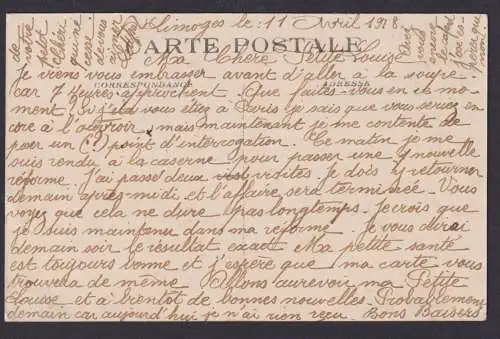 Limoges le : 11 Avril 1918.
CARTE POSTALE
Ma Chère Petite Louise
Je viens vous embrasser avant d'aller à la soupe
CORRESPONDANCE ADRESSE
car 7 heures approchent. Que faites-vous en ce mo-
ment ? si vous étiez à Paris je sais que vous seriez en
core à l'ouvroir, mais maintenant je me contente de
poser un (?) point d'interrogation. Ce matin je me
suis rendu à la caserne pour passer une nouvelle
réforme. J'ai passé deux visites. Je dois y retourner
demain après-midi et l'affaire sera terminée. Vous
voyez que cela ne dure pas longtemps. Je crois que
je suis maintenu dans ma réforme. Je vous dirai
demain soir le résultat exact. Ma petite santé
est toujours bonne et j'espère que ma carte vous
trouvera de même. Allons aurevoir ma Petite
Lousse et à bientôt de bonnes nouvelles. Provablement
demain car aujourd'hui je n'ai rien reçu. Bons Baisers
de
votre
petit
Chéri
qui ne
cesse
de vous
aimer